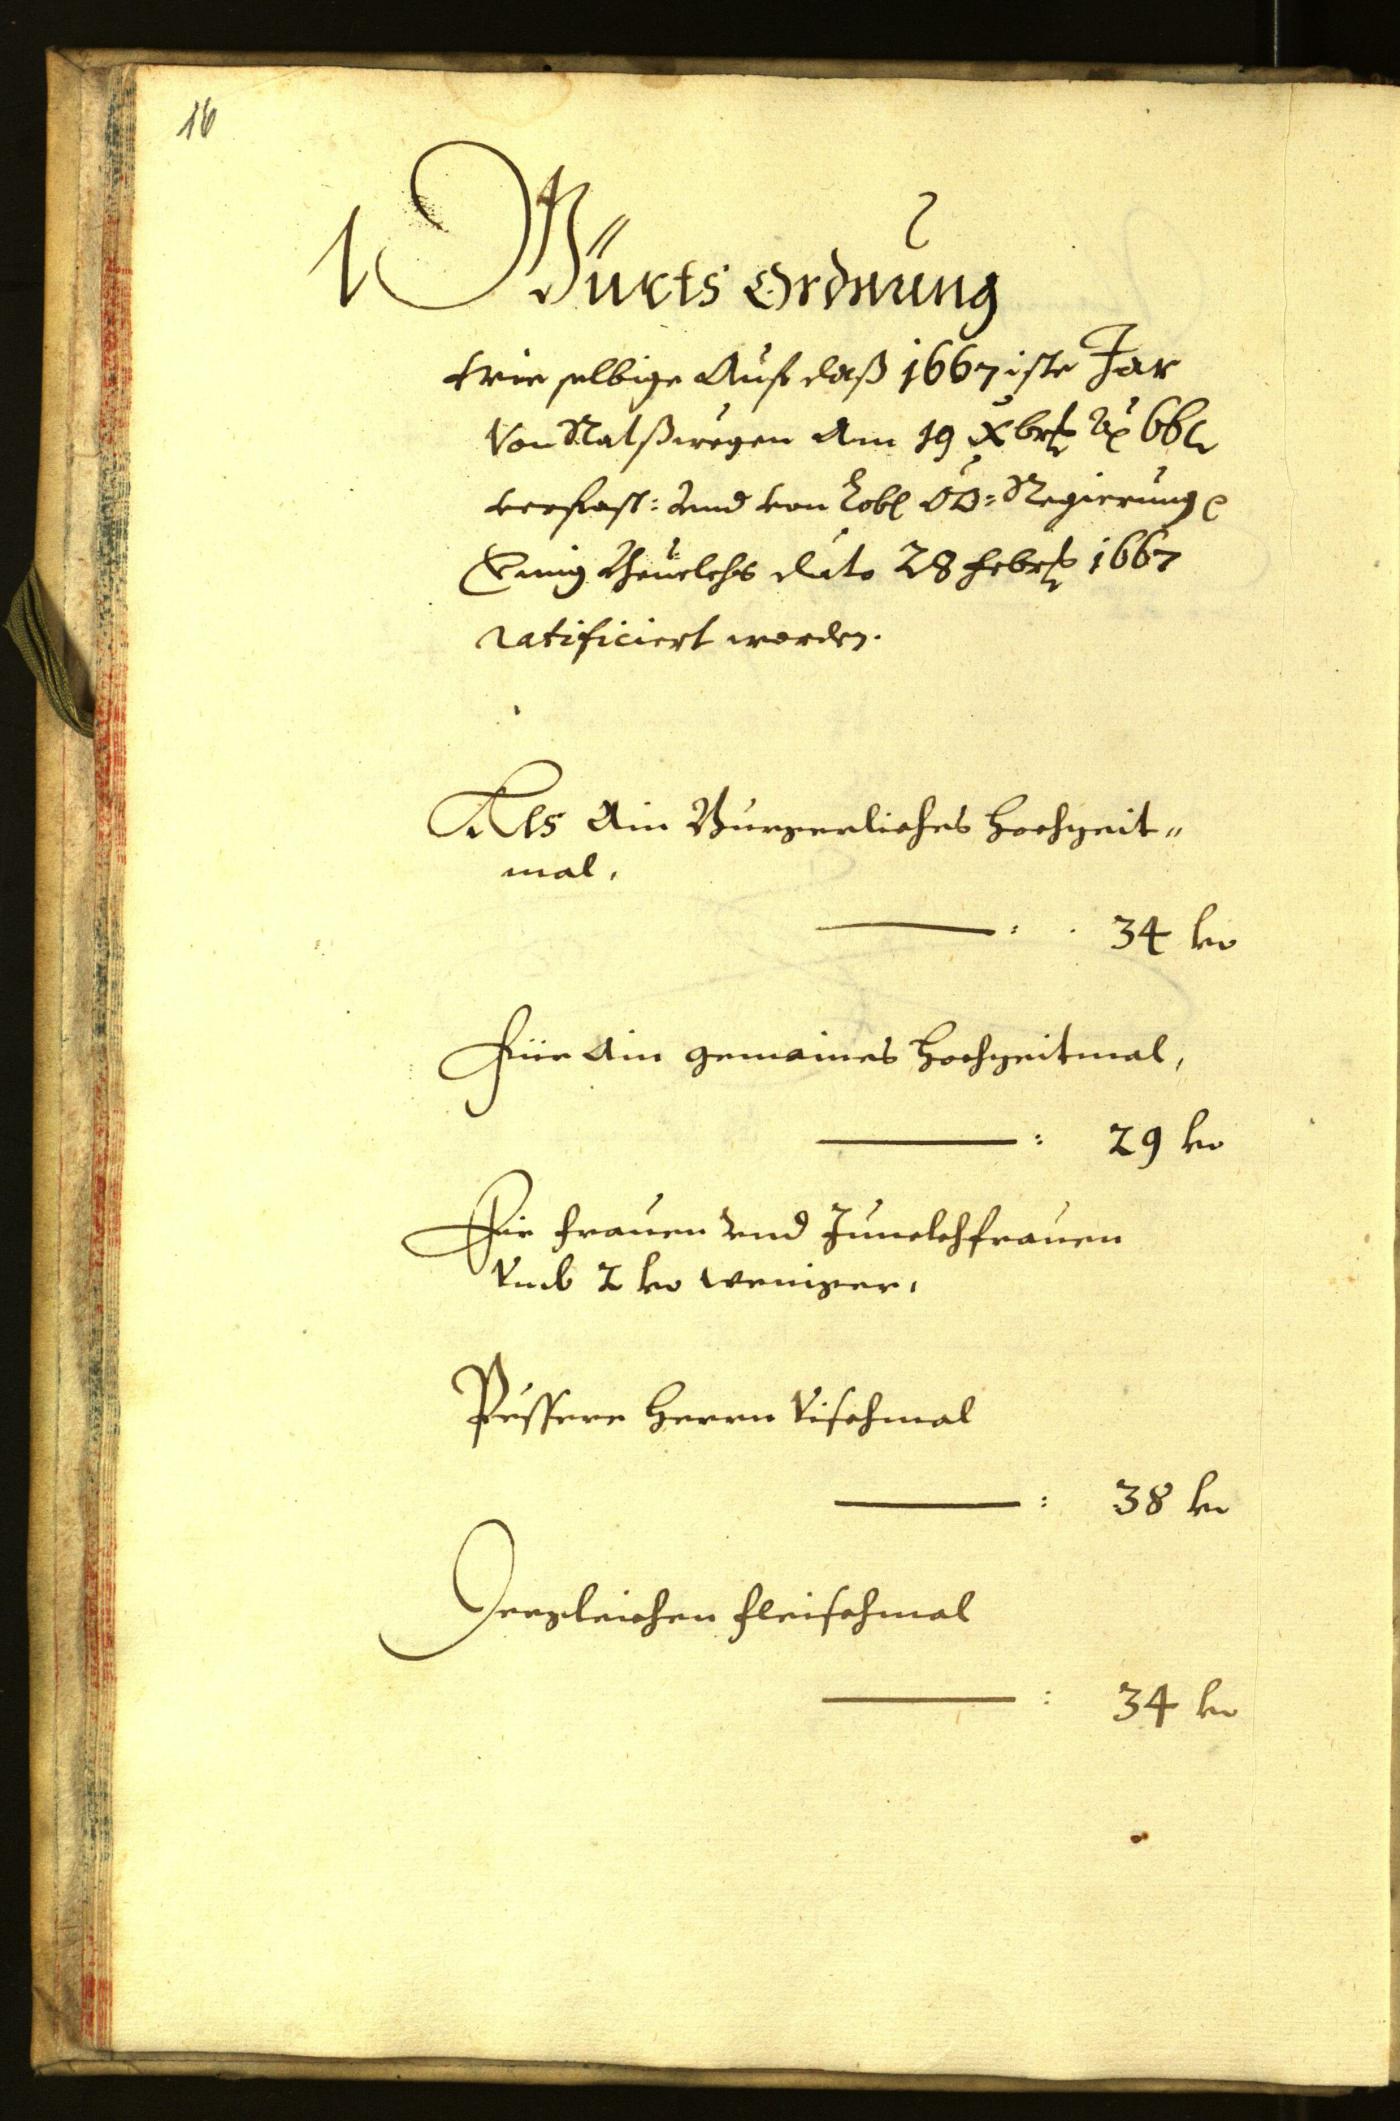 16
Würts Ordnung
wie selbige Auf daß 1667iste Jar
Von Ratßwegen Am 19 Xbris Aō 666
verfast: und von Lobl OÖ: Regierung
dato 28 Febris 1667
ratificiert worden.
Als Ain Burgerliches Hochzeit„
mal,
34 kr
Für Ain gemaines Hochzeitmal,
29 kr
Für Frauen und Junckhfrauen
Umb 2 kr weniger,
Pessere Herrn Vischmal
38 kr
Dergleichen Fleischmal
34 kr